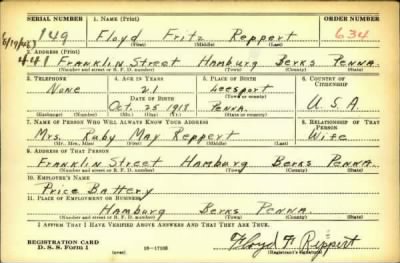 SERIAL NUMBER 1. NAME (Print) ORDER NUMBER
149 Floyd Fritz Reppert 634
(First) (Middle) (Last)
2. ADDRESS (Print)
441 Franklin Street Hamburg Berks Penna.
(Number and street or R. F. D. number) (Town) (County) (State)
3. TELEPHONE 4. AGE IN YEARS 5. PLACE OF BIRTH 6. COUNTRY OF CITIZENSHIP
None 21 Leesport
DATE OF BIRTH (Town or county)
Oct. 25 1918 Penna. U.S.A
(Exchange) (Number) (Mo.) (Day) (Yr.) (State or country)
7. NAME OF PERSON WHO WILL ALWAYS KNOW YOUR ADDRESS 8. RELATIONSHIP OF THAT PERSON
Mrs. Ruby May Reppert Wife
(Mr., Mrs., Miss) (First) (Middle) (Last)
9. ADDRESS OF THAT PERSON
Franklin Street Hamburg Berks Penna.
(Number and street or R. F. D. number) (Town) (County) (State)
10. EMPLOYER'S NAME
Price Battery
11. PLACE OF EMPLOYMENT OR BUSINESS
Hamburg Berks Penna.
(Number and street or R. F. D. number) (Town) (County) (State)
I AFFIRM THAT I HAVE VERIFIED ABOVE ANSWERS AND THAT THEY ARE TRUE.
REGISTRATION CARD
D. S. S. Form 1 (over) 16-17105 Floyd F. Reppert
(Registrant's signature)